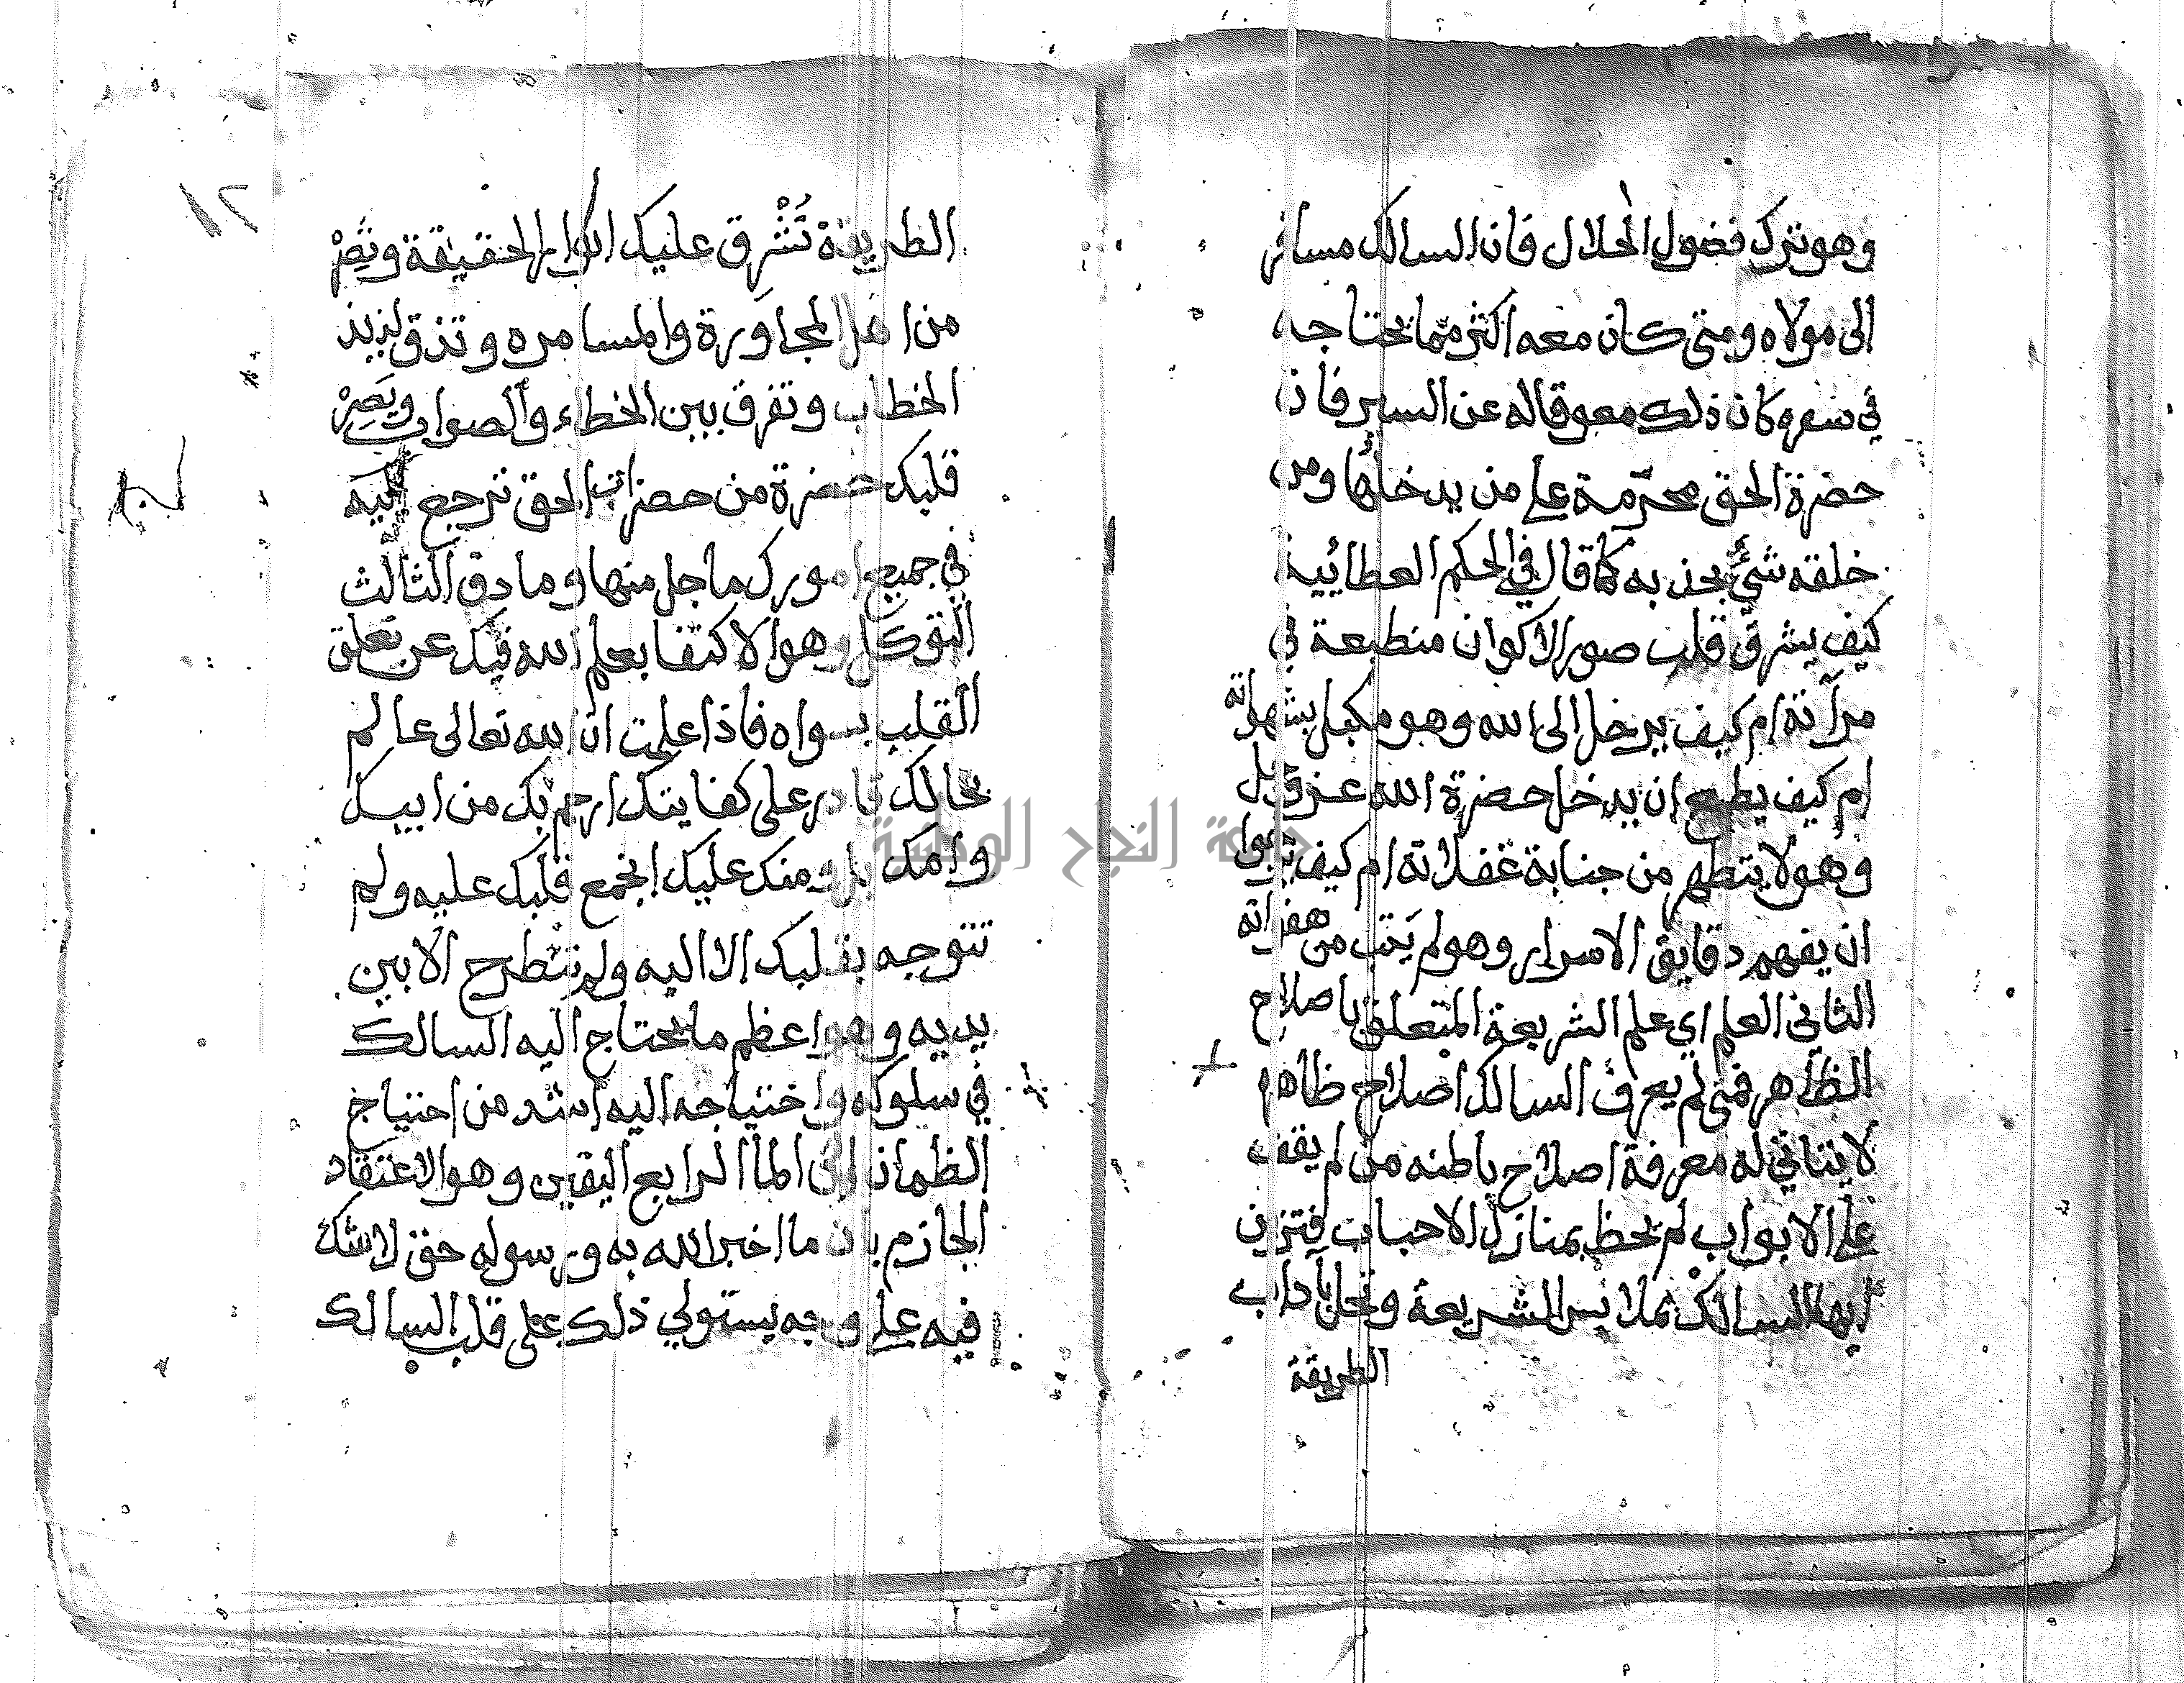 وهو ترك فضول الحلال فان السالك مسافر
الى مولاه ومتى كان معه اكثر مما يحتاجه
في سفره كان ذلك معوقا له عن السير فان
حضرة الحق محرّمة على من يدخلها ومن
خلقه شئ يجذبه كما قال في الحكم العطائية
كيف يشرق قلب صور الاكوان منطبعة في
مرآته ام كيف يرحل الى الله وهو مكبل بشهواته
ام كيف يطمع ان يدخل حضرة الله عز وجل
وهو لا يتطهر من جنابة غفلاته ام كيف يرجوا
ان يفهم دقايق الاسرار وهو لم يَتب من هفواته
الثاني العلم اي علم الشريعة المتعلق باصلاح
الظاهر فمتى لم يعرف السالك اصلاح ظاهره
لا يتاتي له معرفة اصلاح باطنه من لم يقف
على الابواب لم يحظ بمنازل الاحباب فتزين
ايها السالك بملابس الشريعة وتحل بآداب
الطريقة
١٢
الطريقة تُشْرق عليك انوار الحقيقة وتَصِرْ
من اهل المجاورة والمسامره وتذق لذيذ
الخطاب وتفرق بين الخطاء والصواب ويَصِرْ
قلبك حضرة من حضرات الحق ترجع اليه
في جميع امورك ما جل منها وما دق الثالث
التوكل وهو الاكتفا بعلم الله فيك عن تعلق
القلب بسواه فاذا علمت ان الله تعالى عالم
بحالك قادر على كفايتك ارحم بك من ابيك
وامك بل ومنك عليك انجمع قلبك عليه ولم
تتوجه بقلبك الا اليه ولم تنطرح الا بين
يديه وهو اعظم ما يحتاج اليه السالك
في سلوكه واحتياجه اليه اشد من احتياج
الظمان الى الما الرابع اليقين وهو الاعتقاد
الجازم بان ما اخبر الله به ورسوله حق لا شك
فيه على وجه يستولي ذلك على قلب السالك
جامعة النجاح الوطنية